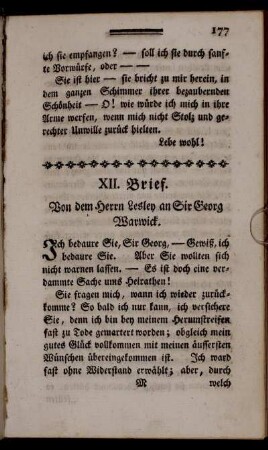 177
ich sie empfangen? — soll ich sie durch sanf-
te Vorwürfe, oder — —
Sie ist hier — sie bricht zu mir herein, in
dem ganzen Schimmer ihrer bezaubernden
Schönheit — O! wie würde ich mich in ihre
Arme werfen, wenn mich nicht Stolz und ge-
rechter Unwille zurück hielten.
Lebe wohl!
XII. Brief.
Von dem Herrn Lesley an Sir Georg
Warwick.
Ich bedaure Sie, Sir Georg, — Gewiß, ich
bedaure Sie. Aber Sie wollten sich
nicht warnen lassen. — Es ist doch eine ver-
dammte Sache ums Heirathen!
Sie fragen mich, wann ich wieder zurück-
komme? So bald ich nur kann, ich versichere
Sie, denn ich bin bey meinem Herumstreifen
fast zu Tode gewartet worden; obgleich mein
gutes Glück vollkommen mit meinen äussersten
Wünschen übereingekommen ist. Ich ward
fast ohne Widerstand erwählt; aber, durch
M welch